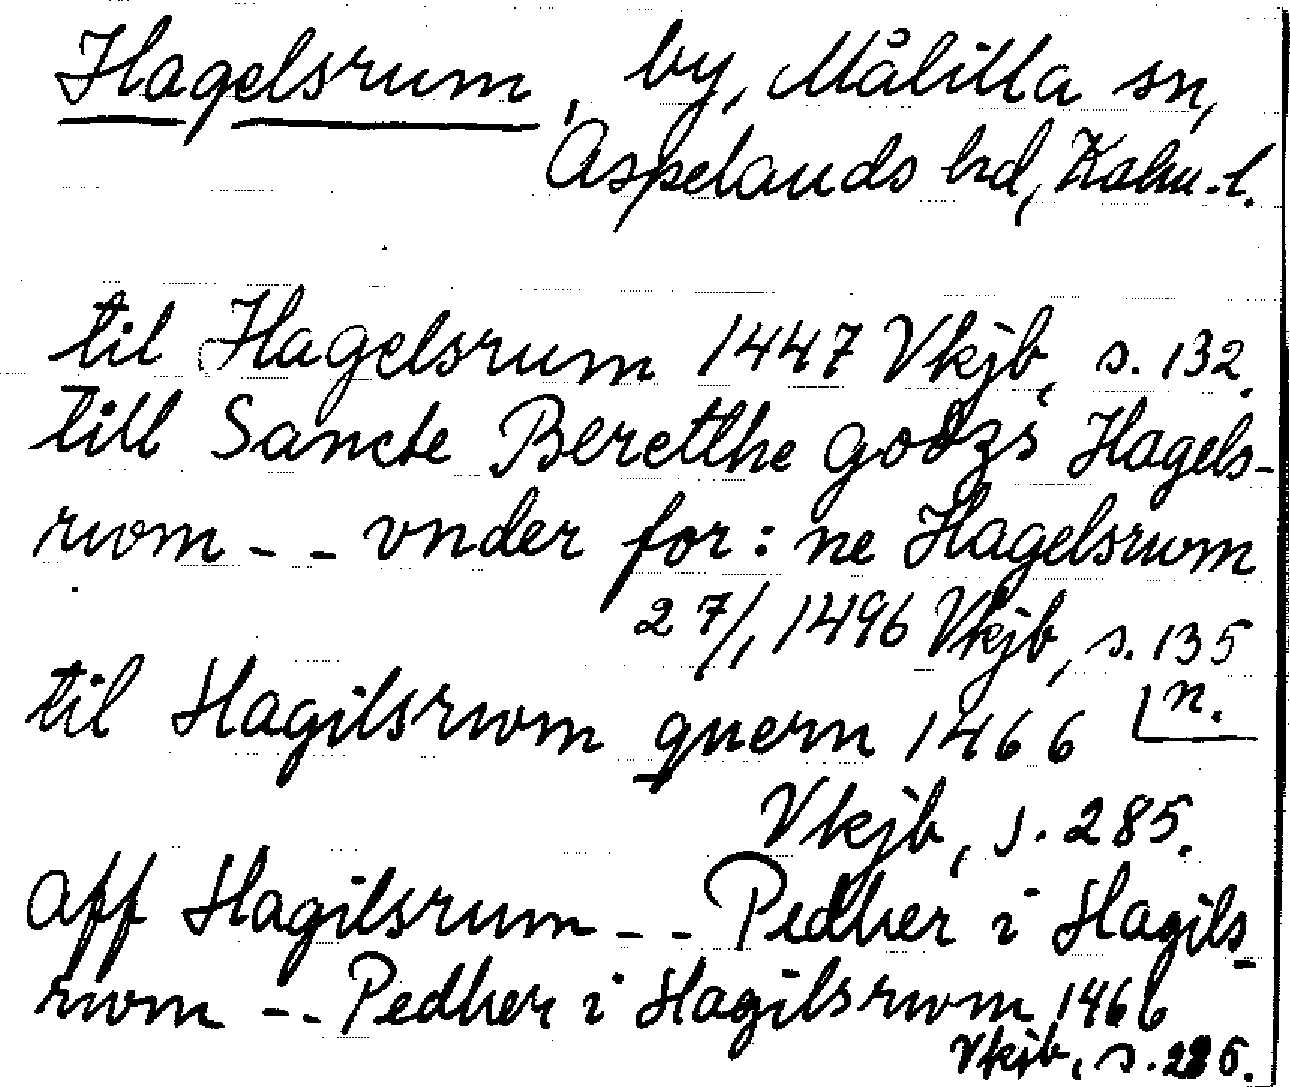 Hagelsrum, by, Målilla sn,
Aspelands hd, Kalm.l.
til Hagelsrum 1447 Vkjb, s. 132.
till Sancte Beretthe godzs Hagels-
rwm -- vnder for:ne Hagelsrwm
27/1 1496 Vkjb, s. 135 n.
til Hagilsrwm quern 1466
Vkjb, s. 285.
aff Hagilsrum -- Pedher i Hagils-
rwm -- Pedher i Hagilsrwm 1466
Vkjb, s. 286.